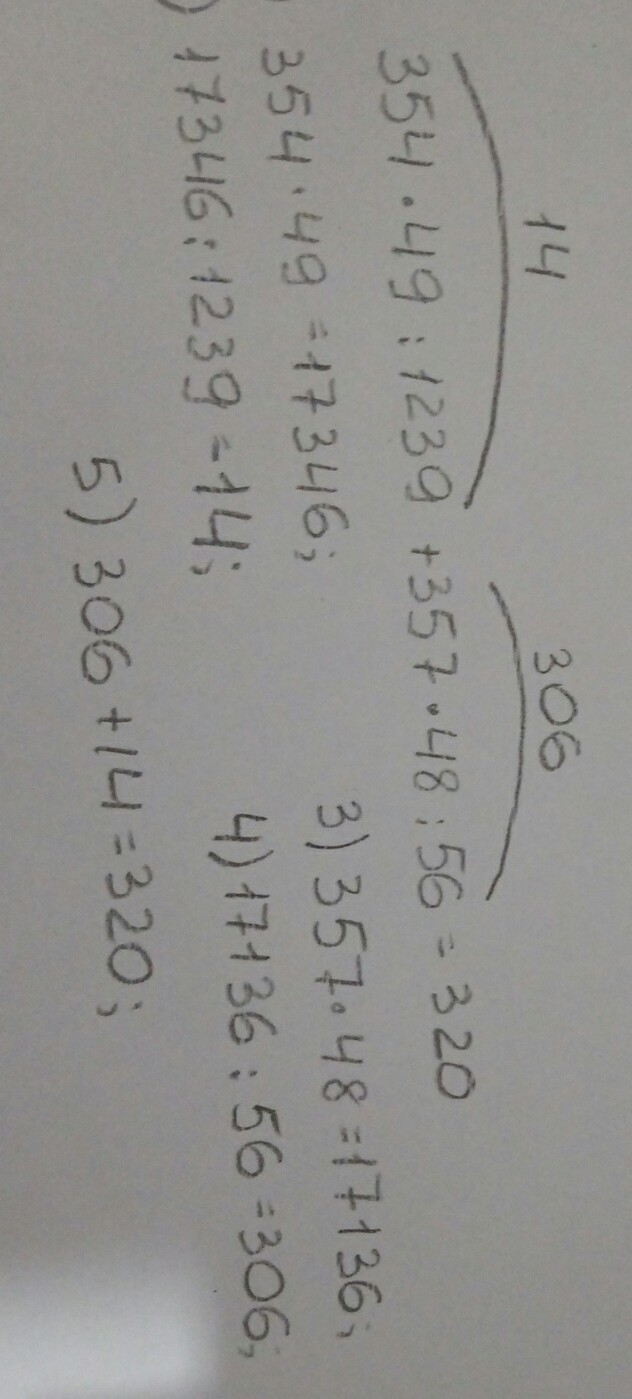 14 306
354·49:1239+357·48:56=320
) 354·49=17346;
) 17346:1239=14;
3) 357·48=17136;
4) 17136:56=306;
5) 306+14=320;